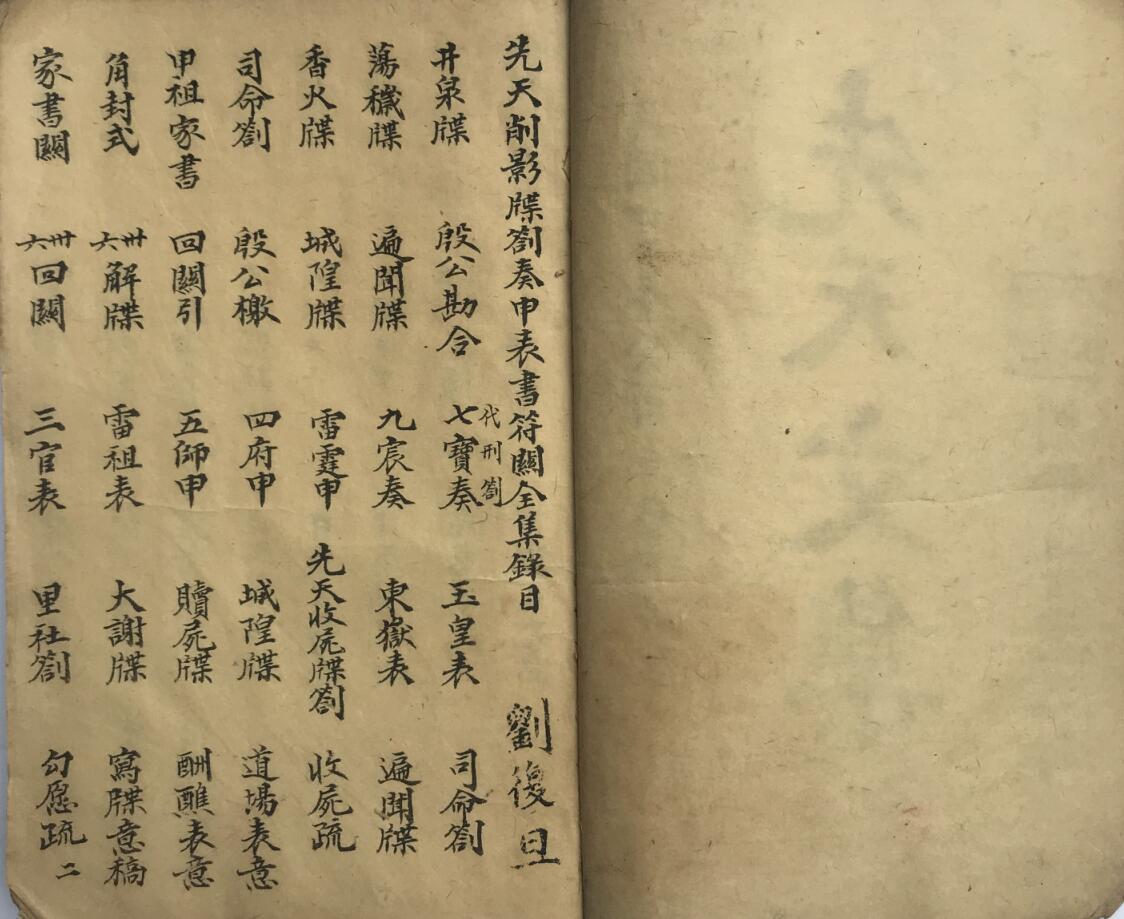 先天削影牒劄奏申表書符關全集錄目 劉復旦
井泉牒 殷公勘合 七寶奏 代刑劄 玉皇表 司命劄
蕩穢牒 遍聞牒 九宸奏 東嶽表 遍聞牒
香火牒 城隍牒 雷霆申 先天收屍牒劄 收屍疏
司命劄 殷公檄 四府申 城隍牒 道場表意
申祖家書 回關引 五師申 贖屍牒 酬醮表意
角封式 卅六解牒 雷祖表 大謝牒 寫牒意稿
家書關 卅六回關 三官表 里社劄 勾愿疏 二